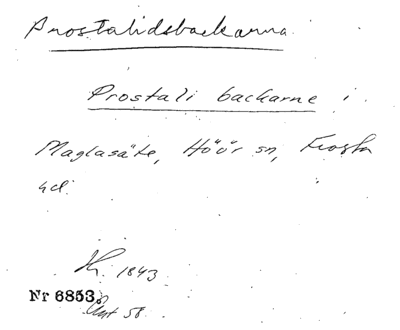 Prostalidsbackarna
Prostali backarne i
Maglasäte, Höör sn, Frosta
hd.
1843
Nr 6853.
58